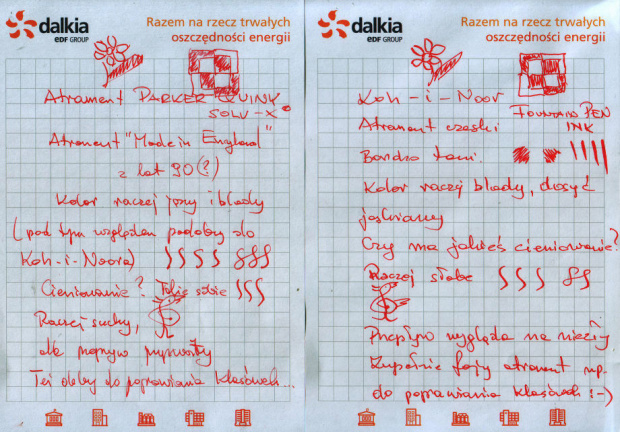 dalkia
EDF GROUP
Razem na rzecz trwałych
oszczędności energii
Atrament PARKER QUINK
SOLV-X
Atrament "Made in England"
z lat 90 (?)
Kolor raczej jasny i blady
(pod tym względem podobny do
Koh-i-Noora)
Cieniowanie? Takie sobie
Raczej suchy,
ale
Też dobry do poprawiania klasówek...
dalkia
EDF GROUP
Razem na rzecz trwałych
oszczędności energii
Koh-i-Noor
FOUNTAIN PEN
INK
Atrament czeski
Bardzo tani.
Kolor raczej blady, dosyć
jaskrawy
Czy ma jakieś cieniowanie?
Raczej słabe
Przepływ wygląda na niezły
Zupełnie fajny atrament np.
do poprawiania klasówek :-)